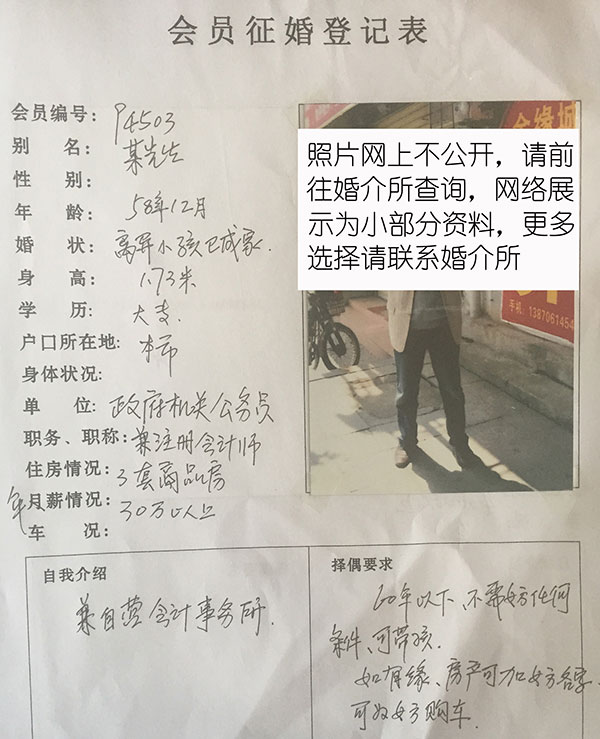 会员征婚登记表
会员编号: P4503
别 名: 某先生
性 别:
年 龄: 58年12月
婚 状: 离异小孩已成家.
身 高: 1.73米
学 历: 大专.
户口所在地: 本市
身体状况:
单 位: 政府机关公务员
职务、职称: 兼注册会计师
住房情况: 3套商品房
年月薪情况: 30万以上
车 况:
照片网上不公开，请前
往婚介所查询，网络展
示为小部分资料，更多
选择请联系婚介所
金缘城
手机: 1387061454
自我介绍
兼自营会计事务所.
择偶要求
60年以下、不需女方任何
条件、可带孩.
如有缘、房产可加女方名字
可为女方购车.